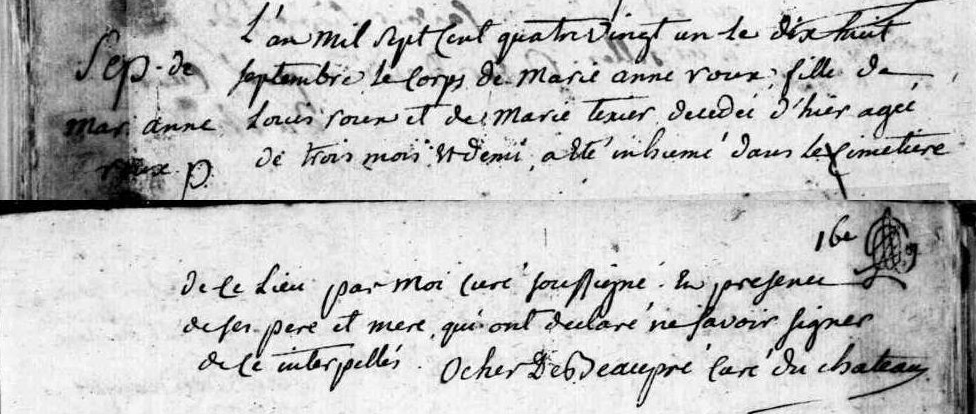 L'an mil Sept Cent quatre Vingt un le dix huit
Sep. de
septembre le Corps de Marie anne roux fille de
mar. anne
Louis roux et de Marie texier decedée d'hier agée
roux. p.
de trois mois et demi a eté inhumé dans le Cimetiere
16e
de ce Lieu par moi Curé soussigné. En presence
de ses pere et mere qui ont declaré ne savoir signer
de ce interpellés. Ocher De Beaupré Curé du chateau